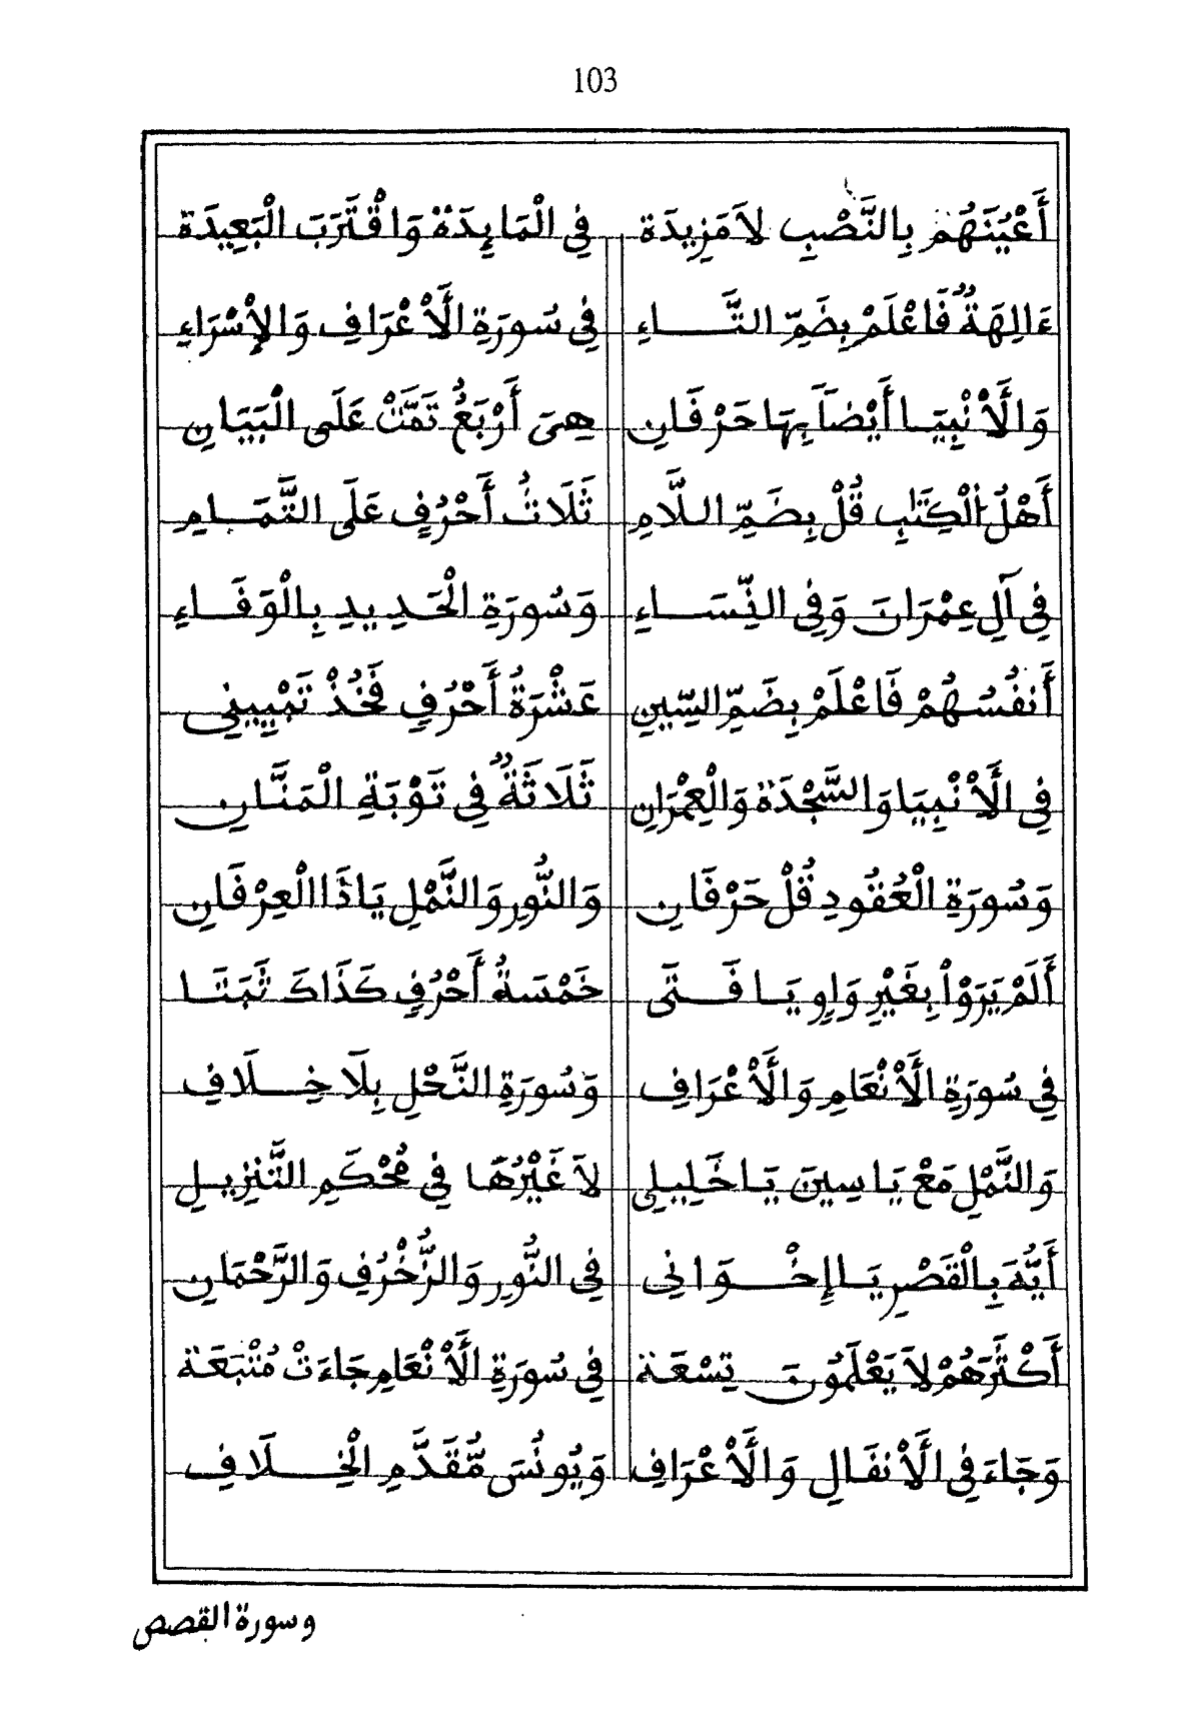 103
أَعْيُنَهُمْ بِالنَّصْبِ لاَ مَزِيدَة فِي الْمَايِدَةْ وَاقْتَرَبَ الْبَعِيدَة
ءَالِهَةٌ فَاعْلَمْ بِضَمِّ التَّاءِ فِي سُورَةِ الَأَعْرَافِ وَالإِسْرَاءِ
وَالَأَنْبِيَا أَيْضاً بِهَا حَرْفَانِ هِيَ أَرْبَعٌ تَمَّتْ عَلَى الْبَيَانِ
أَهْلُ الْكِتَٰبِ قُلْ بِضَمِّ اللَّامِ ثَلَاثُ أَحْرُفٍ عَلَى التَّمَامِ
فِي آلِ عِمْرَانَ وَفِي النِّسَاءِ وَسُورَةِ الْحَدِيدِ بِالْوَفَاءِ
أَنفُسُهُمْ فَاعْلَمْ بِضَمِّ السِّينِ عَشْرَةُ أَحْرُفٍ فَخُذْ تَبْيِينِي
فِي الَأَنْبِيَا وَالسَّجْدَةْ وَالْعِمْرَانِ ثَلَاثَةٌ فِي تَوْبَةِ الْمَنَّانِ
وَسُورَةِ الْعُقُودِ قُلْ حَرْفَانِ وَالنُّورِ وَالنَّمْلِ يَاذَا الْعِرْفَانِ
أَلَمْ يَرَوْاْ بِغَيْرِ وَاوٍ يَا فَتَى خَمْسَةُ أَحْرُفٍ كَذَاكَ ثَبَتَا
فِي سُورَةِ الَأَنْعَامِ وَالَأَعْرَافِ وَسُورَةِ النَّحْلِ بِلَا خِلَافِ
وَالنَّمْلِ مَعْ يَاسِينَ يَا خَلِيلِي لاَ غَيْرُهَا فِي مُحْكَمِ التَّنْزِيلِ
أَيُّهَ بِالْقَصْرِ يَا إِخْوَانِي فِي النُّورِ وَالزُّخْرُفِ وَالرَّحْمَانِ
أَكْثَرَهُمْ لاَ يَعْلَمُونَ تِسْعَة فِي سُورَةِ الَأَنْعَامِ جَاءَتْ مُتْبَعَة
وَجَاءَ فِي الَأَنفَالِ وَالَأَعْرَافِ وَيُونُسَ مُّقَدَّمِ الْخِلَافِ
وسورة القصص